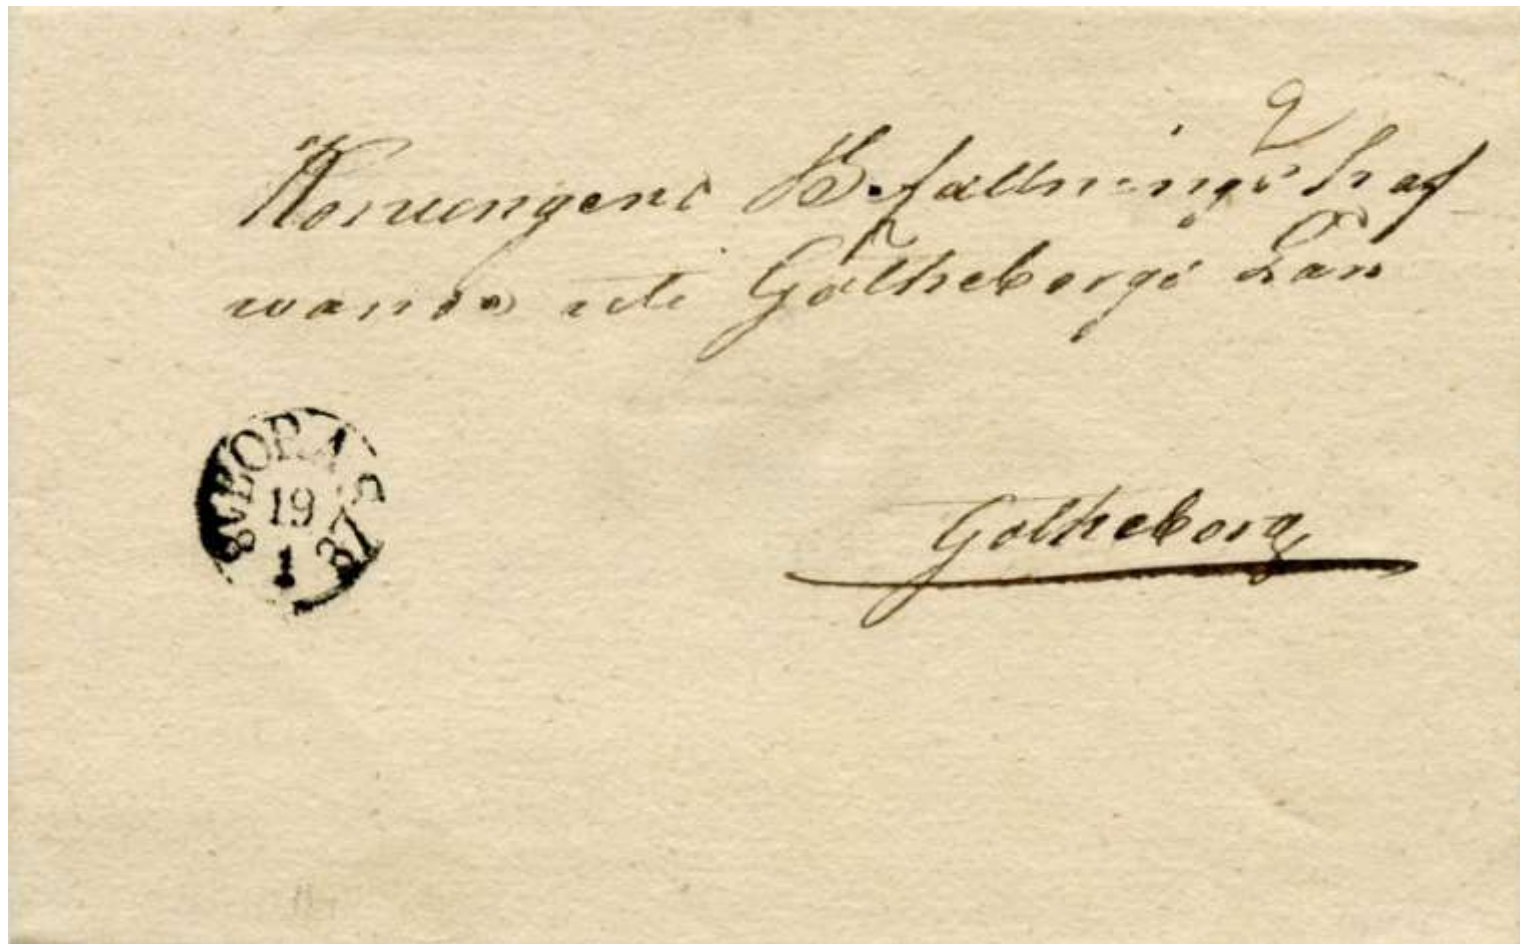 Konungens Befallningshaf
wande uti Götheborgs Län
SVEORAS
19
1
37
Götheborg